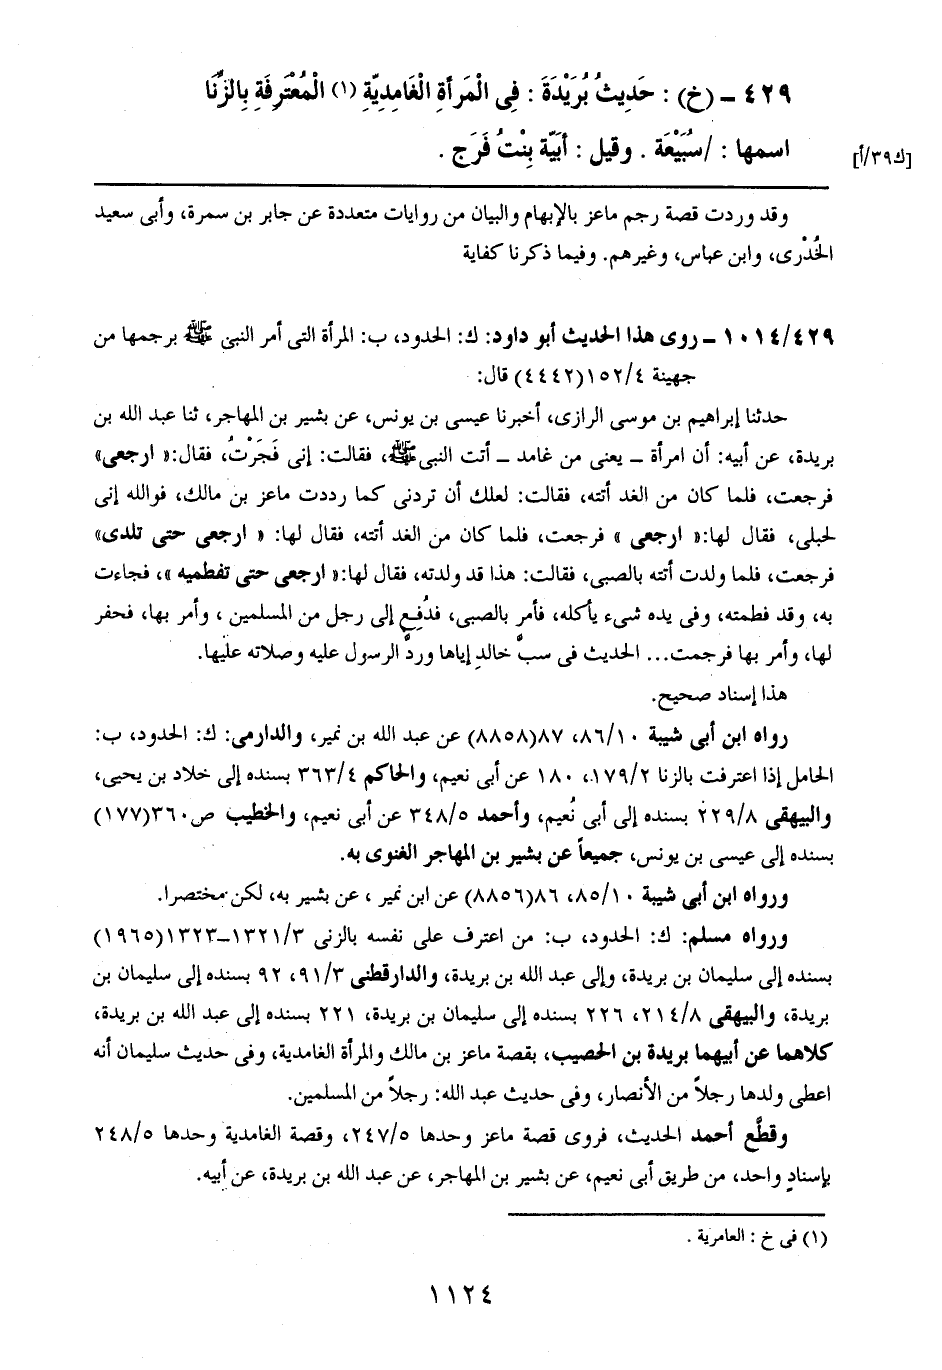 ٤٢٩ ــ (خ) : حَدِيثُ بُرَيْدَةَ : فِى الْمَرأةِ الْغَامِدِيّةِ (١) الْمُعْتَرِفَةِ بِالزِّنَا
اسمها : /سُبَيْعَة . وقيل : أبَيّة بِنْتُ فَرَج .
[ك٣٩/أ]
وقد وردت قصة رجم ماعز بالإبهام والبيان من روايات متعددة عن جابر بن سمرة، وأبى سعيد
الخُدْرى، وابن عباس، وغيرهم. وفيما ذكرنا كفاية
١٠١٤/٤٢٩ ــ روى هذا الحديث أبو داود: ك: الحدود، ب: المرأة التى أمر النبى ﷺ برجمها من
جهينة ١٥٢/٤(٤٤٤٢) قال:
حدثنا إبراهيم بن موسى الرازى، أخبرنا عيسى بن يونس، عن بشير بن المهاجر، ثنا عبد الله بن
بريدة، عن أبيه: أن امرأة ــ يعنى من غامد ــ أتت النبى ﷺ، فقالت: إنى فَجَرْتُ، فقال:« ارجعى»
فرجعت، فلما كان من الغد أتته، فقالت: لعلك أن تردنى كما رددت ماعز بن مالك، فوالله إنى
لحبلى، فقال لها:« ارجعى » فرجعت، فلما كان من الغد أتته، فقال لها: « ارجعى حتى تلدى»
فرجعت، فلما ولدت أتته بالصبى، فقالت: هذا قد ولدته، فقال لها:« ارجعى حتى تفطميه »، فجاءت
به، وقد فطمته، وفى يده شىء يأكله، فأمر بالصبى، فدُفِع إلى رجل من المسلمين ، وأمر بها، فحفر
لها، وأمر بها فرجمت... الحديث فى سبّ خالدٍ إياها وردَّ الرسول عليه وصلاته عليها.
هذا إسناد صحيح.
رواه ابن أبى شيبة ٨٦/١٠، ٨٧(٨٨٥٨) عن عبد الله بن نمير، والدارمى: ك: الحدود، ب:
الحامل إذا اعترفت بالزنا ١٧٩/٢، ١٨٠ عن أبى نعيم، والحاكم ٣٦٣/٤ بسنده إلى خلاد بن يحيى،
والبيهقى ٢٢٩/٨ بسنده إلى أبى نُعيم، وأحمد ٣٤٨/٥ عن أبى نعيم، والخطيب ص٣٦٠(١٧٧)
بسنده إلى عيسى بن يونس، جميعاً عن بشير بن المهاجر الغنوى به.
ورواه ابن أبى شيبة ٨٥/١٠، ٨٦(٨٨٥٦) عن ابن نمير ، عن بشير به، لكن مختصرا.
ورواه مسلم: ك: الحدود، ب: من اعترف على نفسه بالزنى ١٣٢١/٣–١٣٢٣(١٩٦٥)
بسنده إلى سليمان بن بريدة، وإلى عبد الله بن بريدة، والدارقطنى ٩١/٣، ٩٢ بسنده إلى سليمان بن
بريدة، والبيهقى ٢١٤/٨، ٢٢٦ بسنده إلى سليمان بن بريدة، ٢٢١ بسنده إلى عبد الله بن بريدة،
كلاهما عن أبيهما بريدة بن الحصيب، بقصة ماعز بن مالك والمرأة الغامدية، وفى حديث سليمان أنه
اعطى ولدها رجلاً من الأنصار، وفى حديث عبد الله: رجلاً من المسلمين.
وقطَّع أحمد الحديث، فروى قصة ماعز وحدها ٢٤٧/٥، وقصة الغامدية وحدها ٢٤٨/٥
بإسنادٍ واحد، من طريق أبى نعيم، عن بشير بن المهاجر، عن عبد الله بن بريدة، عن أبيه.
(١) فى خ : العامرية .
١١٢٤